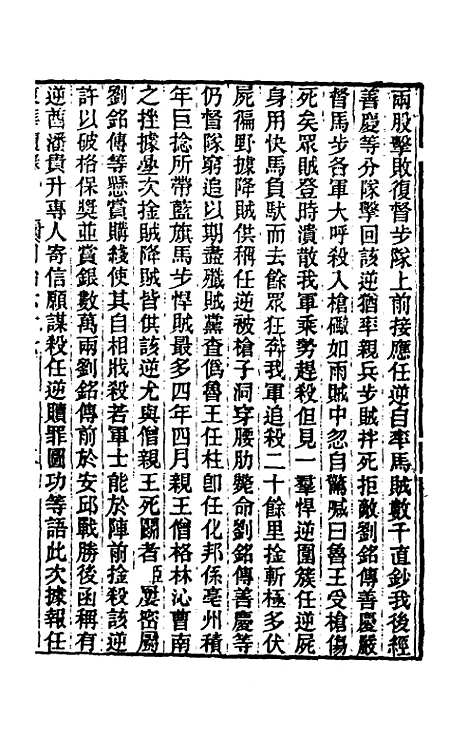 兩股擊敗復督步隊上前接應任逆自率馬賊數千直鈔我後經
善慶等分隊擊回該逆猶率親兵步賊拌死拒敵劉銘傳善慶嚴
督馬步各軍大呼殺入槍礮如雨賊中忽自驚喊曰魯王受槍傷
死矣眾賊登時潰散我軍乘勢趕殺但見一羣悍逆圍簇任逆屍
身用快馬負馱而去餘眾狂奔我軍追殺二十餘里捡斬極多伏
屍徧野據降賊供稱任逆被槍子洞穿腰肋斃命劉銘傳善慶等
仍督隊窮追以期盡殲賊黨查偽魯王任柱卽任化邦係亳州積
年巨捻所帶藍旗馬步悍賊最多四年四月親王僧格林沁曹南
之挫據壘次捡賊降賊皆供該逆尤與僧親王死鬭者 屢密屬
劉銘傳等懸賞購綫使其自相戕殺若軍士能於陣前捡殺該逆
許以破格保獎並賞銀數萬兩劉銘傳前於安邱戰勝後函稱有
逆酋潘貴升專人寄信願謀殺任逆贖罪圖功等語此次據報任